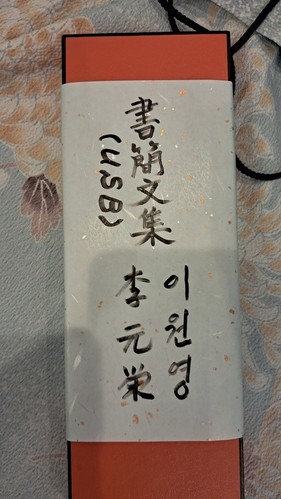 書簡文集
(USB)
이원영
李元栄